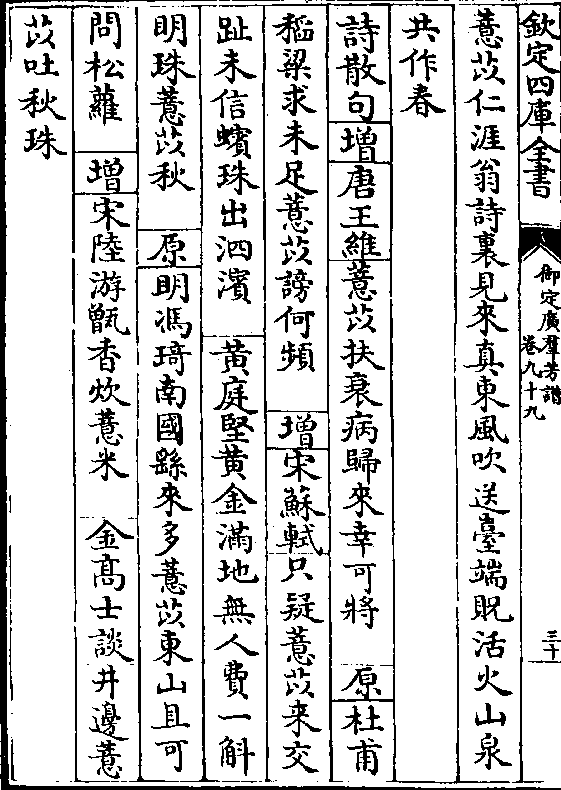 欽定四庫全書
御定廣羣芳譜
卷九十九
三十
薏苡仁涯翁詩裏見來真東風吹送臺端貺活火山泉
共作春
詩散句增唐王維薏苡扶衰病歸來幸可將 原杜甫
稻粱求未足薏苡謗何頻 增宋蘇軾只疑薏苡來交
趾未信蠙珠出泗濱 黄庭堅黄金滿地無人費一斛
明珠薏苡秋 原明馮琦南國繇來多薏苡東山且可
問松蘿 增宋陸游甑香炊薏米 金髙士談井邊薏
苡吐秋珠